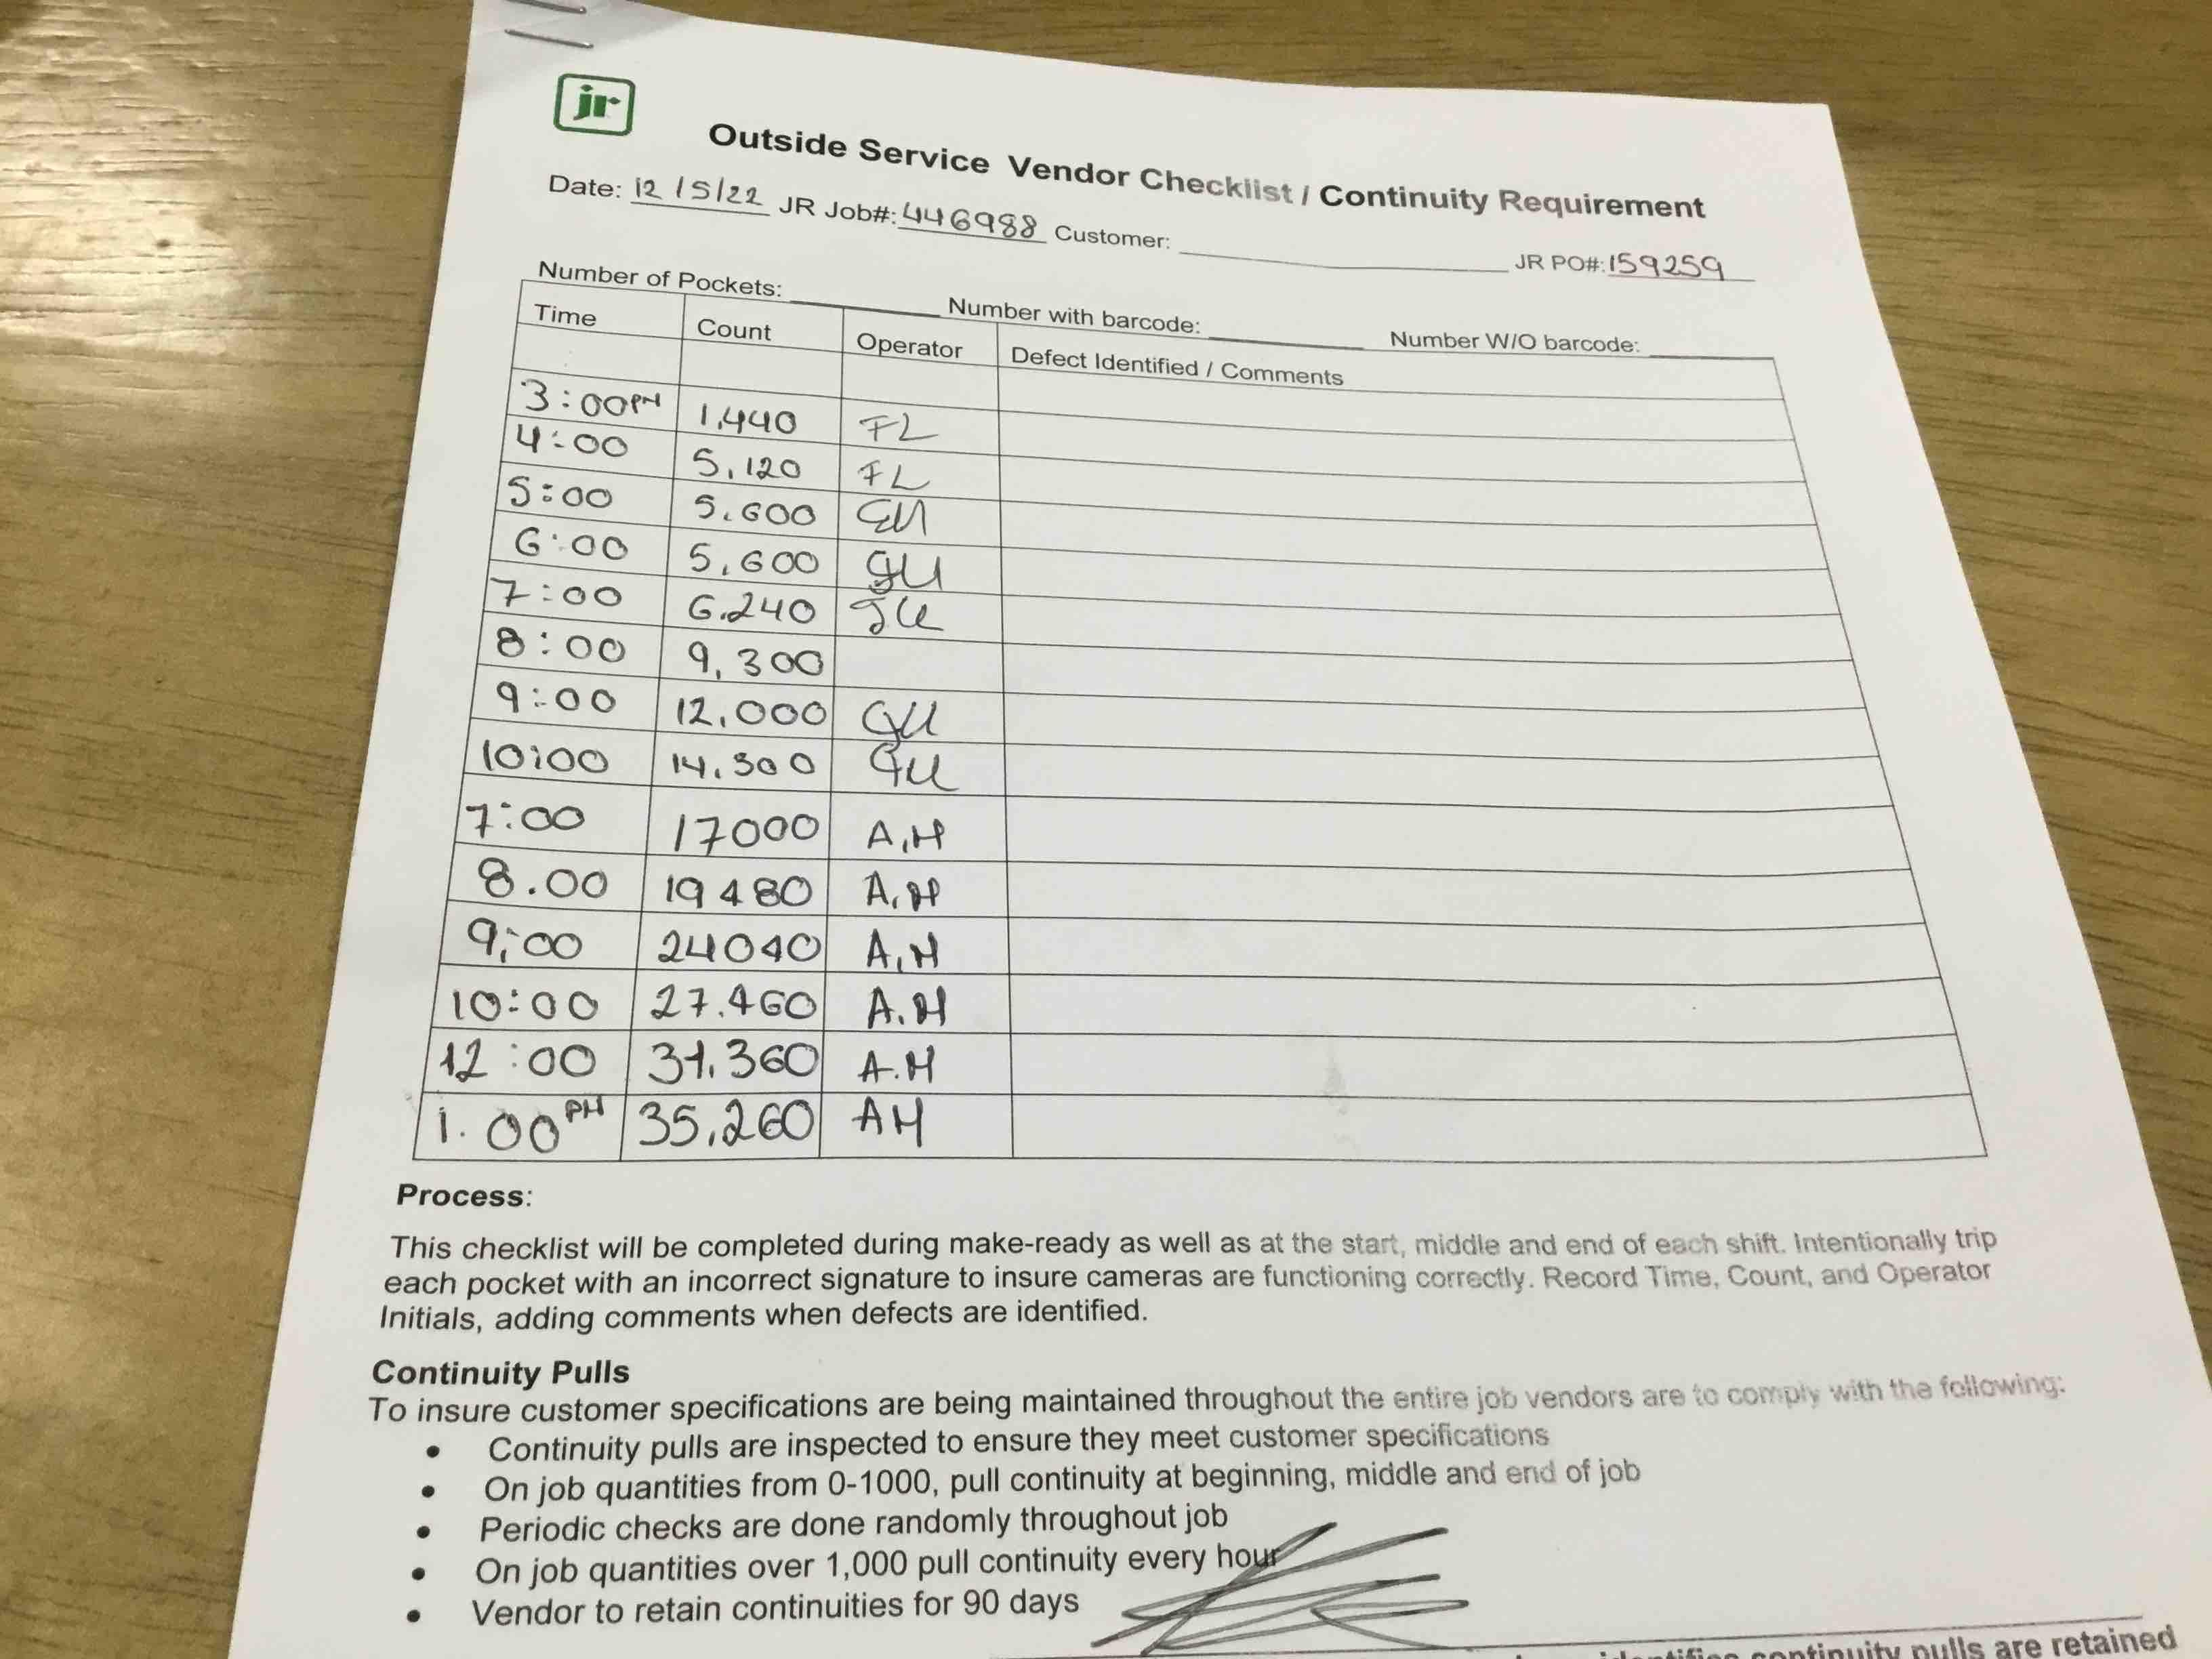 jr
Outside Service Vendor Checklist / Continuity Requirement
Date: 12/5/22 JR Job#: 446988 Customer: JR PO#: 159259
Number of Pockets: Number with barcode: Number W/O barcode:
Time Count Operator Defect Identified / Comments
3:00PM 1,440 FL
4:00 5,120 FL
5:00 5.600 GU
6:00 5,600 GU
7:00 6.240 GU
8:00 9,300
9:00 12,000 GU
10:00 14,300 GU
7:00 17000 A.H
8.00 19480 A.H
9:00 24040 A.H
10:00 27.460 A.H
12:00 31.360 A.H
1.00PM 35,260 AH
Process:
This checklist will be completed during make-ready as well as at the start, middle and end of each shift. Intentionally trip
each pocket with an incorrect signature to insure cameras are functioning correctly. Record Time, Count, and Operator
Initials, adding comments when defects are identified.
Continuity Pulls
To insure customer specifications are being maintained throughout the entire job vendors are to comply with the following:
• Continuity pulls are inspected to ensure they meet customer specifications
• On job quantities from 0-1000, pull continuity at beginning, middle and end of job
• Periodic checks are done randomly throughout job
• On job quantities over 1,000 pull continuity every hour
• Vendor to retain continuities for 90 days
continuity pulls are retained